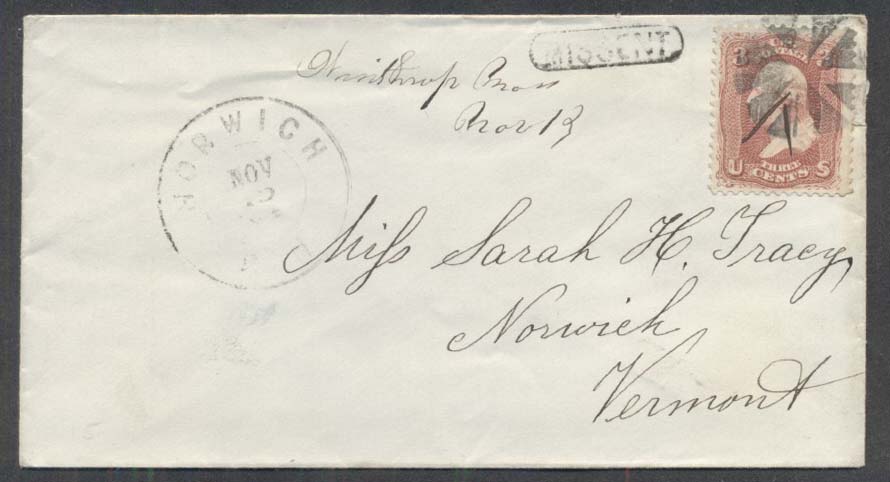 MISSENT
Winthrop Mass
Nov 13
NORWICH
NOV
Miss Sarah H. Tracy,
Norwich
Vermont
3
POSTAGE
U THREE CENTS S